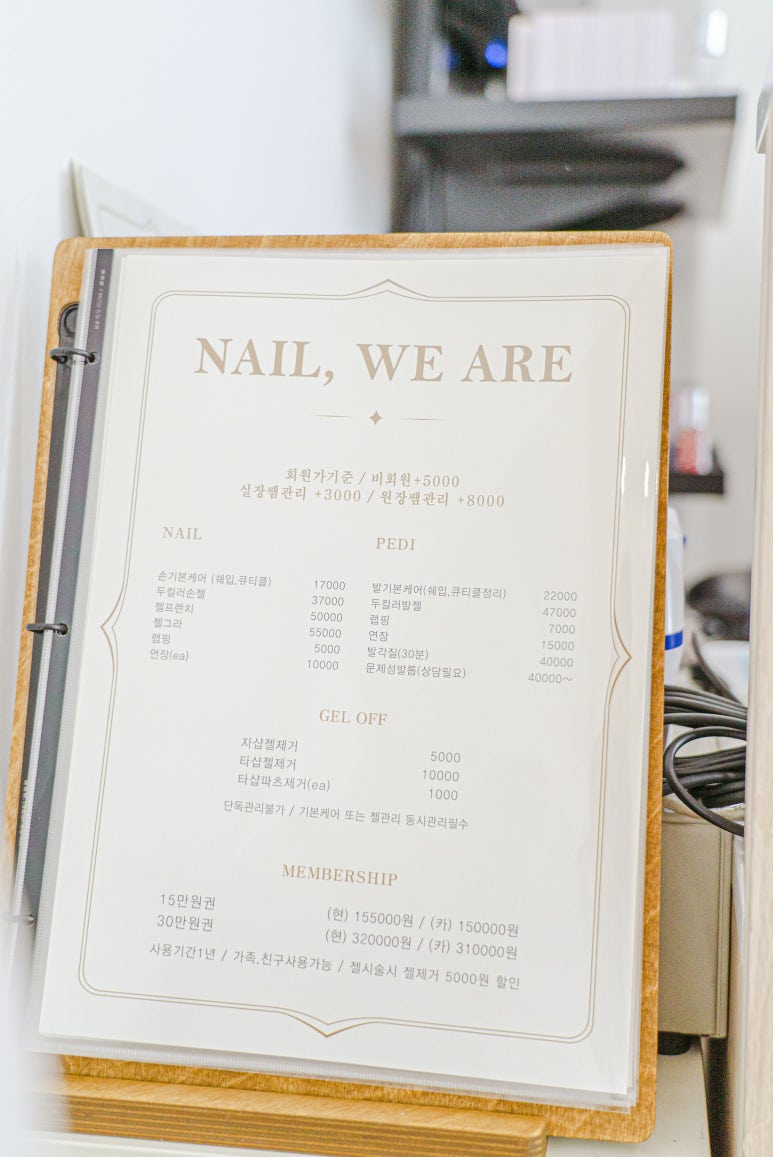 NAIL, WE ARE
회원가기준 / 비회원+5000
실장쌤관리 +3000 / 원장쌤관리 +8000
NAIL
손기본케어 (쉐입,큐티클) 17000
두컬러손젤 37000
젤프렌치 50000
젤그라 55000
랩핑 5000
연장(ea) 10000
PEDI
발기본케어(쉐입,큐티클정리) 22000
두컬러발젤 47000
랩핑 7000
연장 15000
발각질(30분) 40000
문제성발톱(상담필요) 40000~
GEL OFF
자샵젤제거 5000
타샵젤제거 10000
타샵파츠제거(ea) 1000
단독관리불가 / 기본케어 또는 젤관리 동시관리필수
MEMBERSHIP
15만원권 (현) 155000원 / (카) 150000원
30만원권 (현) 320000원 / (카) 310000원
사용기간1년 / 가족,친구사용가능 / 젤시술시 젤제거 5000원 할인